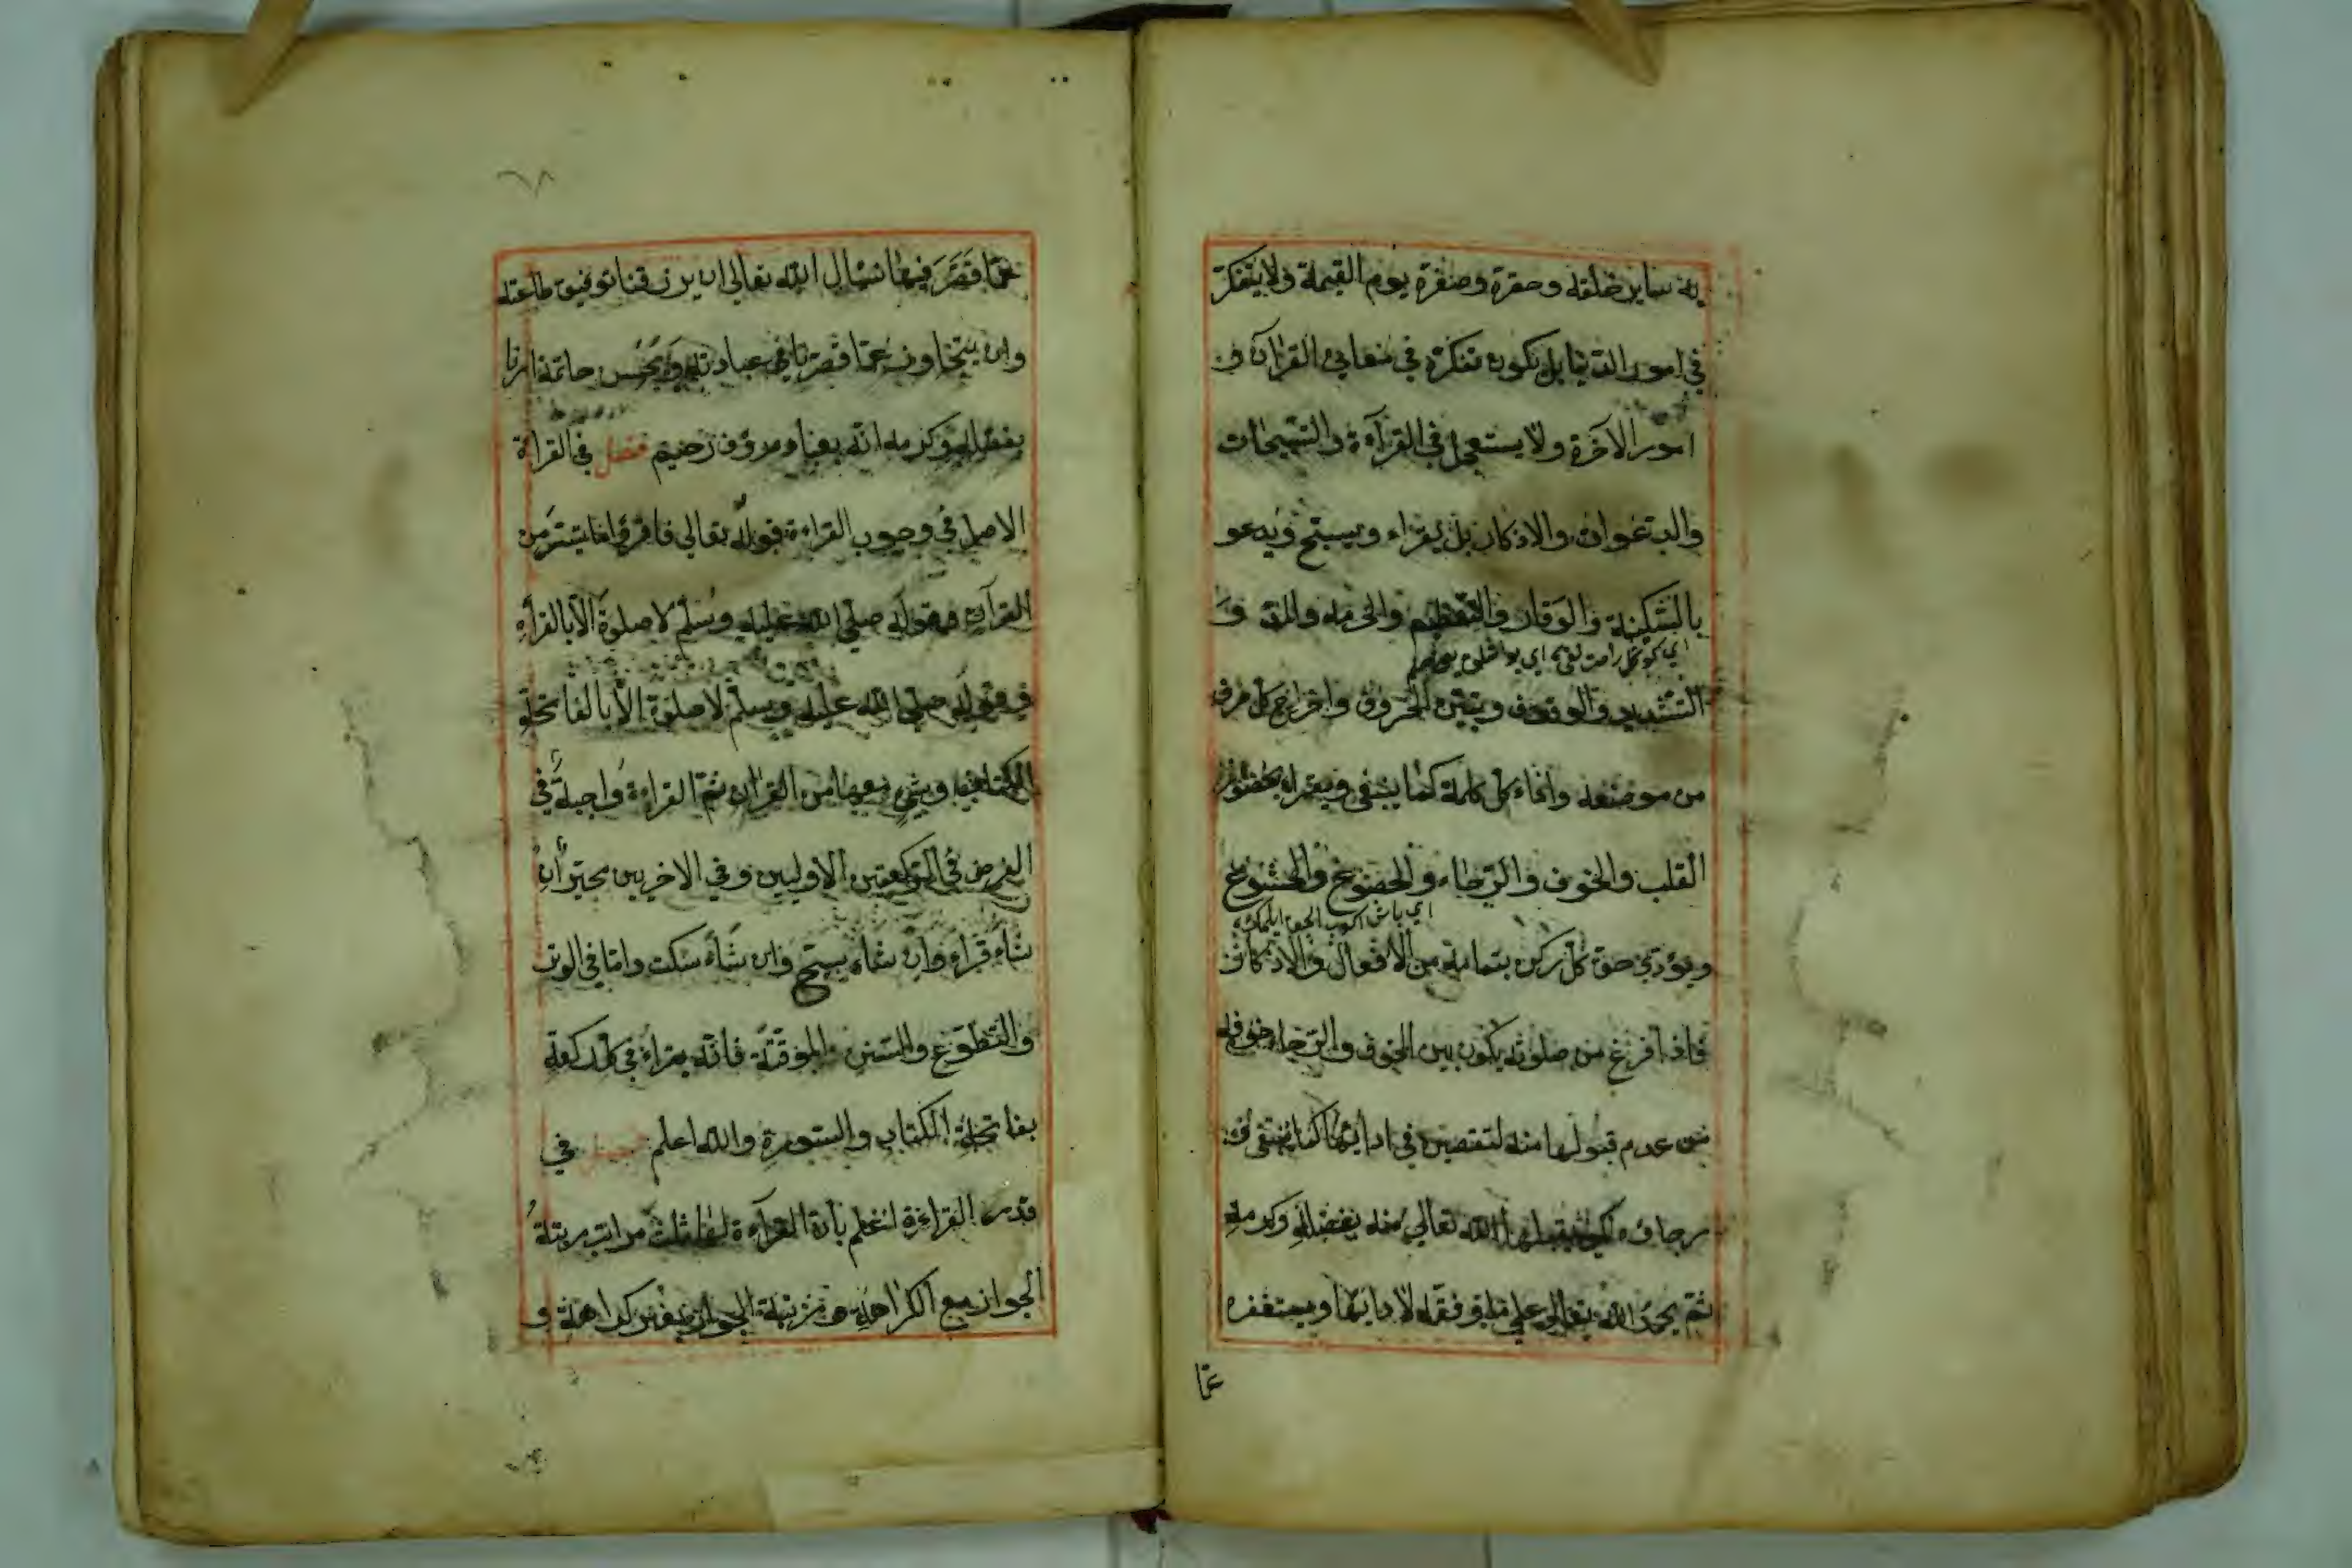 به ساير خلقه وحقره وصغره يوم القيمة ولا يتفكر
في امور الدنيا بل يكون تفكره في معاني القرآن و
امور الآخرة ولا يستعجل في القرآءة والتسبيحات
والدعوات والاذكار بل يقراء ويسبح ويدعو
بالسكينة والوقار والتعظيم والحرمة والمد و
التشديد والوقوف وتبيين الحروف واخراج كل حرف
من موضعه واتمام كل كلمة كما ينبغي ويقراء بحضور
القلب والخوف والرجاء والخضوع والخشوع
ويؤدي حق كل ركن بتمامه من الافعال والاذكار
فاذا فرغ من صلوته يكون بين الخوف والرجاء خوفه
من عدم قبولها منه لتقصير في ادائها كما ينبغي و
رجاؤه يقبلها الله تعالى منه بفضله وكرمه
ثم يحمد الله تعالى على ما وفقه لادائها ويستغفره
عما
٦٨
عما قصر فيها نسال الله تعالى ان يرزقنا توفيق طاعته
وان يتجاوز عما قصرنا في عبادته ويحسن خاتمة ارنا
بفضله وكرمه انه بعباده رؤوف رحيم فصل في القراءة
الاصل في وجوب القراءة قوله تعالى فاقرؤا ما تيسر من
القرآن وقوله صلى الله عليه وسلم لا صلوة الا بالقراءة
وقوله صلى الله عليه وسلم لا صلوة الا بالفاتحة
الكتاب وشيء معها من القرآن ثم القراءة واجبة في
الفرض في الركعتين الاوليين وفي الاخريين يخير ان
شاء قراء وان شاء يسبح وان شاء سكت واما في الوتر
والتطوع والسنن الموقتة فانه يقراء في كل ركعة
بفاتحة الكتاب والسورة والله اعلم فصل في
قدر القراءة اعلم بان القرآءة لها ثلث مراتب مرتبة
الجواز مع الكراهة ومرتبة الجواز بغير كراهة و